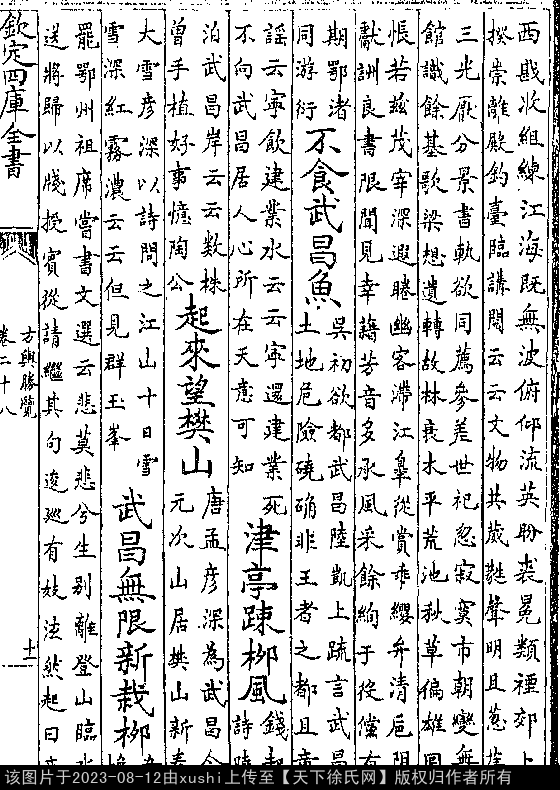 西戡收組練江海既無波俯仰流英盼裘冕類禋郊卜
揆崇離殿釣臺臨講閱云云文物共葳蕤聲明且葱蒨
三光厭分景書軌欲同薦參差世祀忽寂寞市朝變無
館識餘基歌梁想遺轉故林衰木平荒池秋草偏雄圖
悵若兹茂宰深遐睠幽客滯江臯從賞乖纓弁清巵阻
獻詶良書限聞見幸籍芳音多承風采餘絢于役儻有
期鄂渚
同游衍
不食武昌魚
吳初欲都武昌陸凱上疏言武昌
土地危險磽确非王者之都且童
謡云寧飲建業水云云寧還建業死
不向武昌居人心所在天意可知
津亭踈柳風
錢起
詩陸
泊武昌岸云云數株
曽手植好事憶陶公
起來望樊山
唐孟彦深為武昌令
元次山居樊山新春
大雪彦深以詩問之江山十日雪
雪深紅霧濃云云但見群玉峯
武昌無限新栽柳
罷鄂州祖席嘗書文選云悲莫悲兮生别離登山臨水
送將歸以牋授賓從請繼其句逡廵有妓泫然起曰
欽定四庫全書
方輿勝覽
卷二十八
十一
该图片于2023-08-12由xushi上传至【天下徐氏网】版权归作者所有